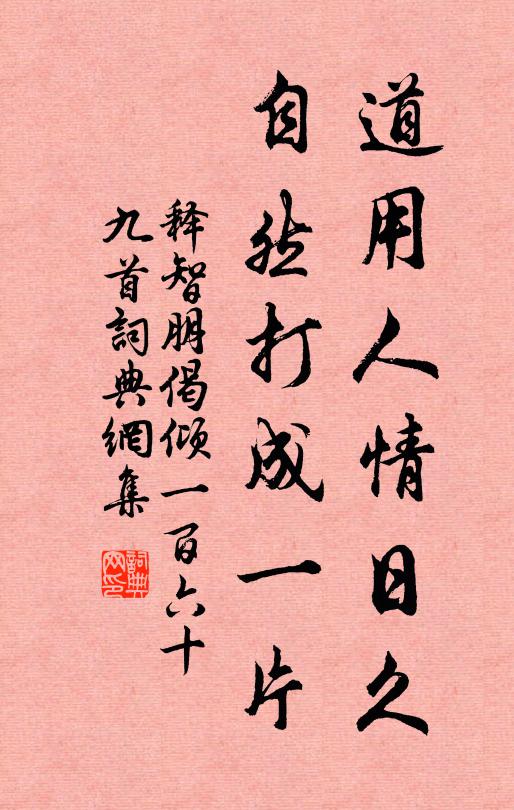 道用人情日久
自然打成一片
释智朋偈倾一百六十
九首詞典網集
詞典
网印